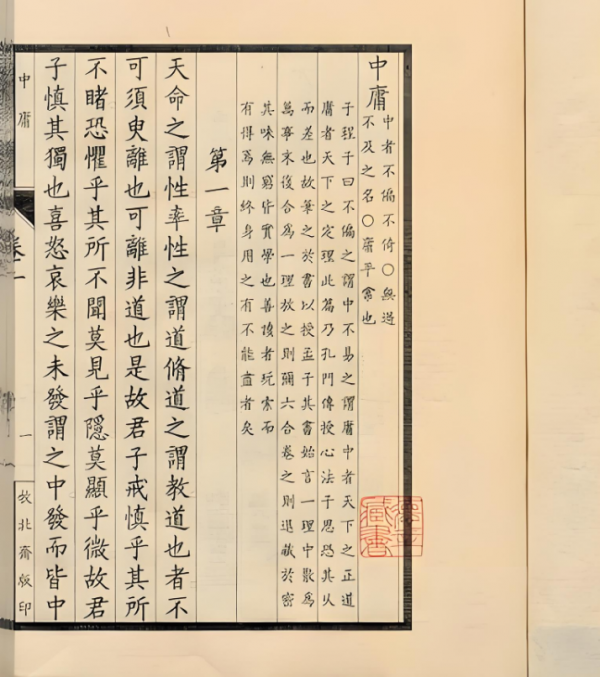 中庸
中者不偏不倚〇無過
不及之名〇庸平常也
子程子曰不偏之謂中不易之謂庸中者天下之正道
庸者天下之定理此篇乃孔門傳授心法子思恐其久
而差也故筆之於書以授孟子其書始言一理中散爲
萬事末復合爲一理放之則彌六合卷之則退藏於密
其味無窮皆實學也善讀者玩索而
有得焉則終身用之有不能盡者矣
第一章
天命之謂性率性之謂道脩道之謂教道也者不
可須臾離也可離非道也是故君子戒慎乎其所
不睹恐懼乎其所不聞莫見乎隱莫顯乎微故君
子慎其獨也喜怒哀樂之未發謂之中發而皆中
中庸
一
北齋版印
藏書